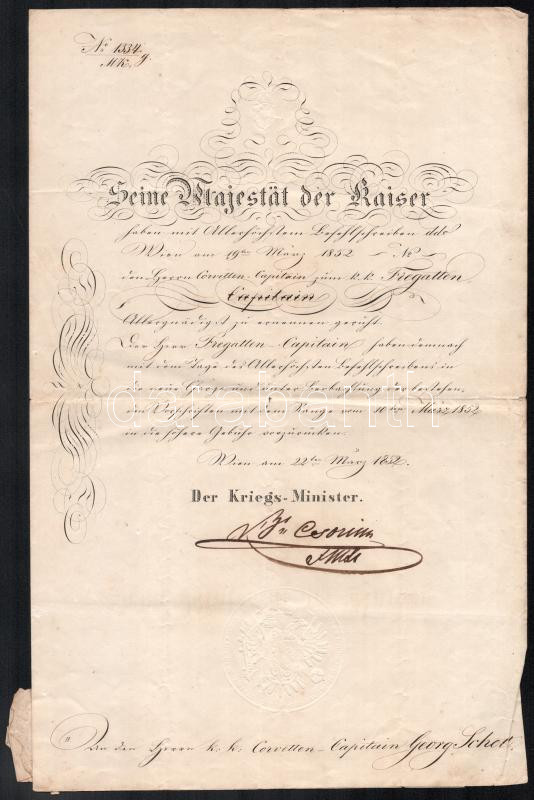 No 1334.
MK. g.
Seine Majestät der Kaiser
haben mit Allerhöchstem Befehlschreiben ddo
Wien am 19ten März 1852 No
den Herrn Corvetten-Capitain zum k.k. Fregatten
Capitain
Allergnädigst zu ernennen geruht.
Der Herr Fregatten-Capitain haben demnach
mit dem Tage des Allerhöchsten Befehlschreibens in
die neue Charge und unter Beobachtung der bestehen
den Vorschriften mit dem Range vom 10ten März 1852
in die höhere Gebühr vorzurücken.
Wien am 22ten März 1852.
Der Kriegs-Minister.
Csorich
An den Herrn k: k: Corvetten-Capitain Georg
darabanth